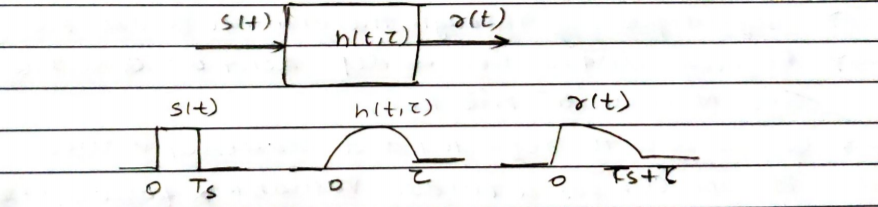 s(t) h(t,τ) r(t)
s(t) h(t,τ) r(t)
0 Ts 0 τ 0 Ts+τ